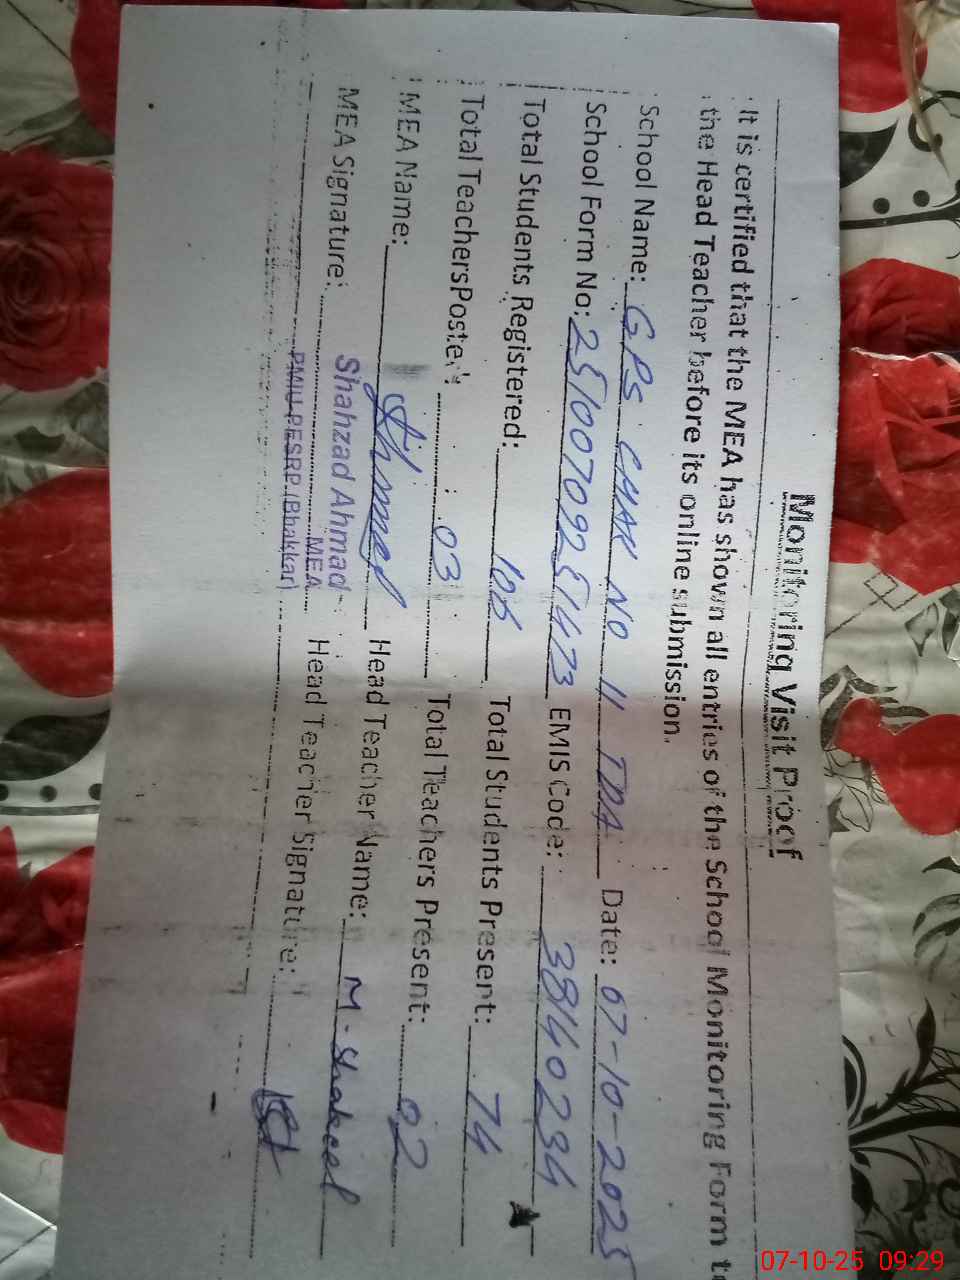 Monitoring Visit Proof
It is certified that the MEA has shown all entries of the School Monitoring Form to
the Head Teacher before its online submission.
School Name: GPS CHAK NO 11 TDA Date: 07-10-2025
School Form No: EMIS Code: 38140234
Total Students Registered: 106 Total Students Present: 74
Total Teachers Posted: 03 Total Teachers Present: 02
MEA Name: Head Teacher Name: M. Shakeel
MEA Signature: Shahzad Ahmad Head Teacher Signature:
MEA
PMIU-PESRP (Bhakkar)
07-10-25 09:29